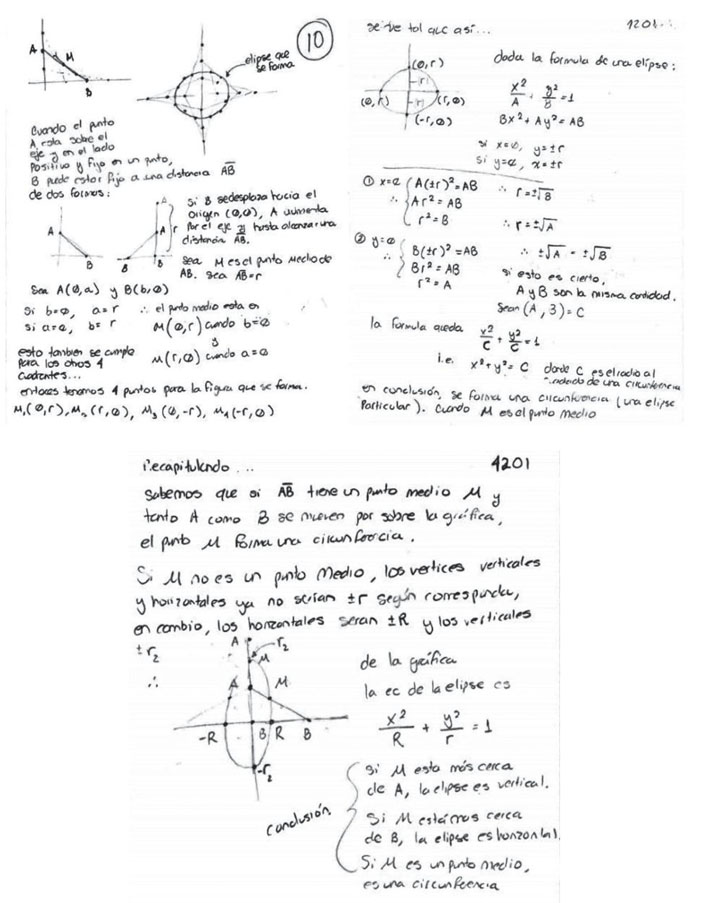 10
A
M
B
elipse que
se forma
Cuando el punto
A esta sobre el
eje y en el lado
Positivo y Fijo en un punto,
B puede estar fijo a una distancia AB
de dos formas:
A
B
A
r
A
B
Si B se desplaza hacia el
Origen (0,0), A aumenta
Por el eje y hasta alcanzar una
distancia AB.
Sea M es el punto Medio de
AB. sea AB=r
Sea A(0,a) y B(b,0)
Si b=0, a=r ∴ el punto medio esta en
Si a=0, b=r M(0,r) cuando b=0
y
esto tambien se cumple M(r,0) cuando a=0
Para los otros 4
Cuadrantes...
entonces tenemos 4 puntos para la figura que se forma.
M₁(0,r), M₂(r,0), M₃(0,-r), M₄(-r,0)
se ve tal que así... 1201
(0,r)
(0,r)
(r,0)
(-r,0)
dada la formula de una elipse:
x²/A + y²/B = 1
Bx² + Ay² = AB
si x=0, y=±r
si y=0, x=±r
① x=0 { A(±r)² = AB
∴ Ar² = AB
r² = B
∴ r=±√B
② y=0 { B(±r)² = AB
∴ Br² = AB
r² = A
∴ r=±√A
∴ ±√A = ±√B
si esto es cierto,
A y B son la misma cantidad.
Sean (A, B) = C
la formula queda x²/C + y²/C = 1
i.e. x²+y² = C donde C es el radio al
cuadrado de una circunferencia
en conclusión, se forma una circunferencia (una elipse
Particular). Cuando M es al punto medio
Recapitulando ... 4201
Sabemos que si AB tiene un punto medio M y
tanto A como B se mueven por sobre la gráfica,
el punto M Forma una circunferencia.
Si M no es un punto Medio, los vertices verticales
y horizontales ya no serian ±r según corresponda,
en cambio, los horizontales seran ±R y los verticales
±r₂
∴
A
r₂
M
A
M
-R
B
R
B
-r₂
de la gráfica
la ec de la elipse es
x²/R + y²/r = 1
conclusión
Si M esta más cerca
de A, la elipse es vertical.
Si M está mas cerca
de B, la elipse es horizontal.
Si M es un punto medio,
es una circunferencia